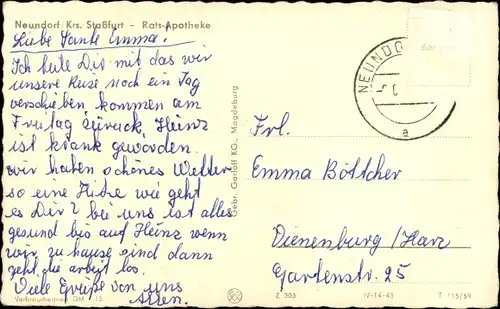 Neundorf/Krs. Staßfurt - Rats-Apotheke
Liebe Tante Emma!
Ich teile Dir mit das wir
unsere Reise noch ein Tag
verschieben kommen am
Freitag zurück, Heinz
ist krank geworden.
wir haben schönes Wetter
so eine Hitze wie geht
es Dir? bei uns ist alles
gesund bis auf Heinz wenn
wir zu hause sind dann
geht die arbeit los.
Viele Grüße von uns
allen.
DM 15
Gebr. Garloff KG., Magdeburg
NEUNDO
a
Frl.
Emma Böttcher
Vienenburg/Harz
Gartenstr. 25
Z 303
IV-14-45
T 115/59